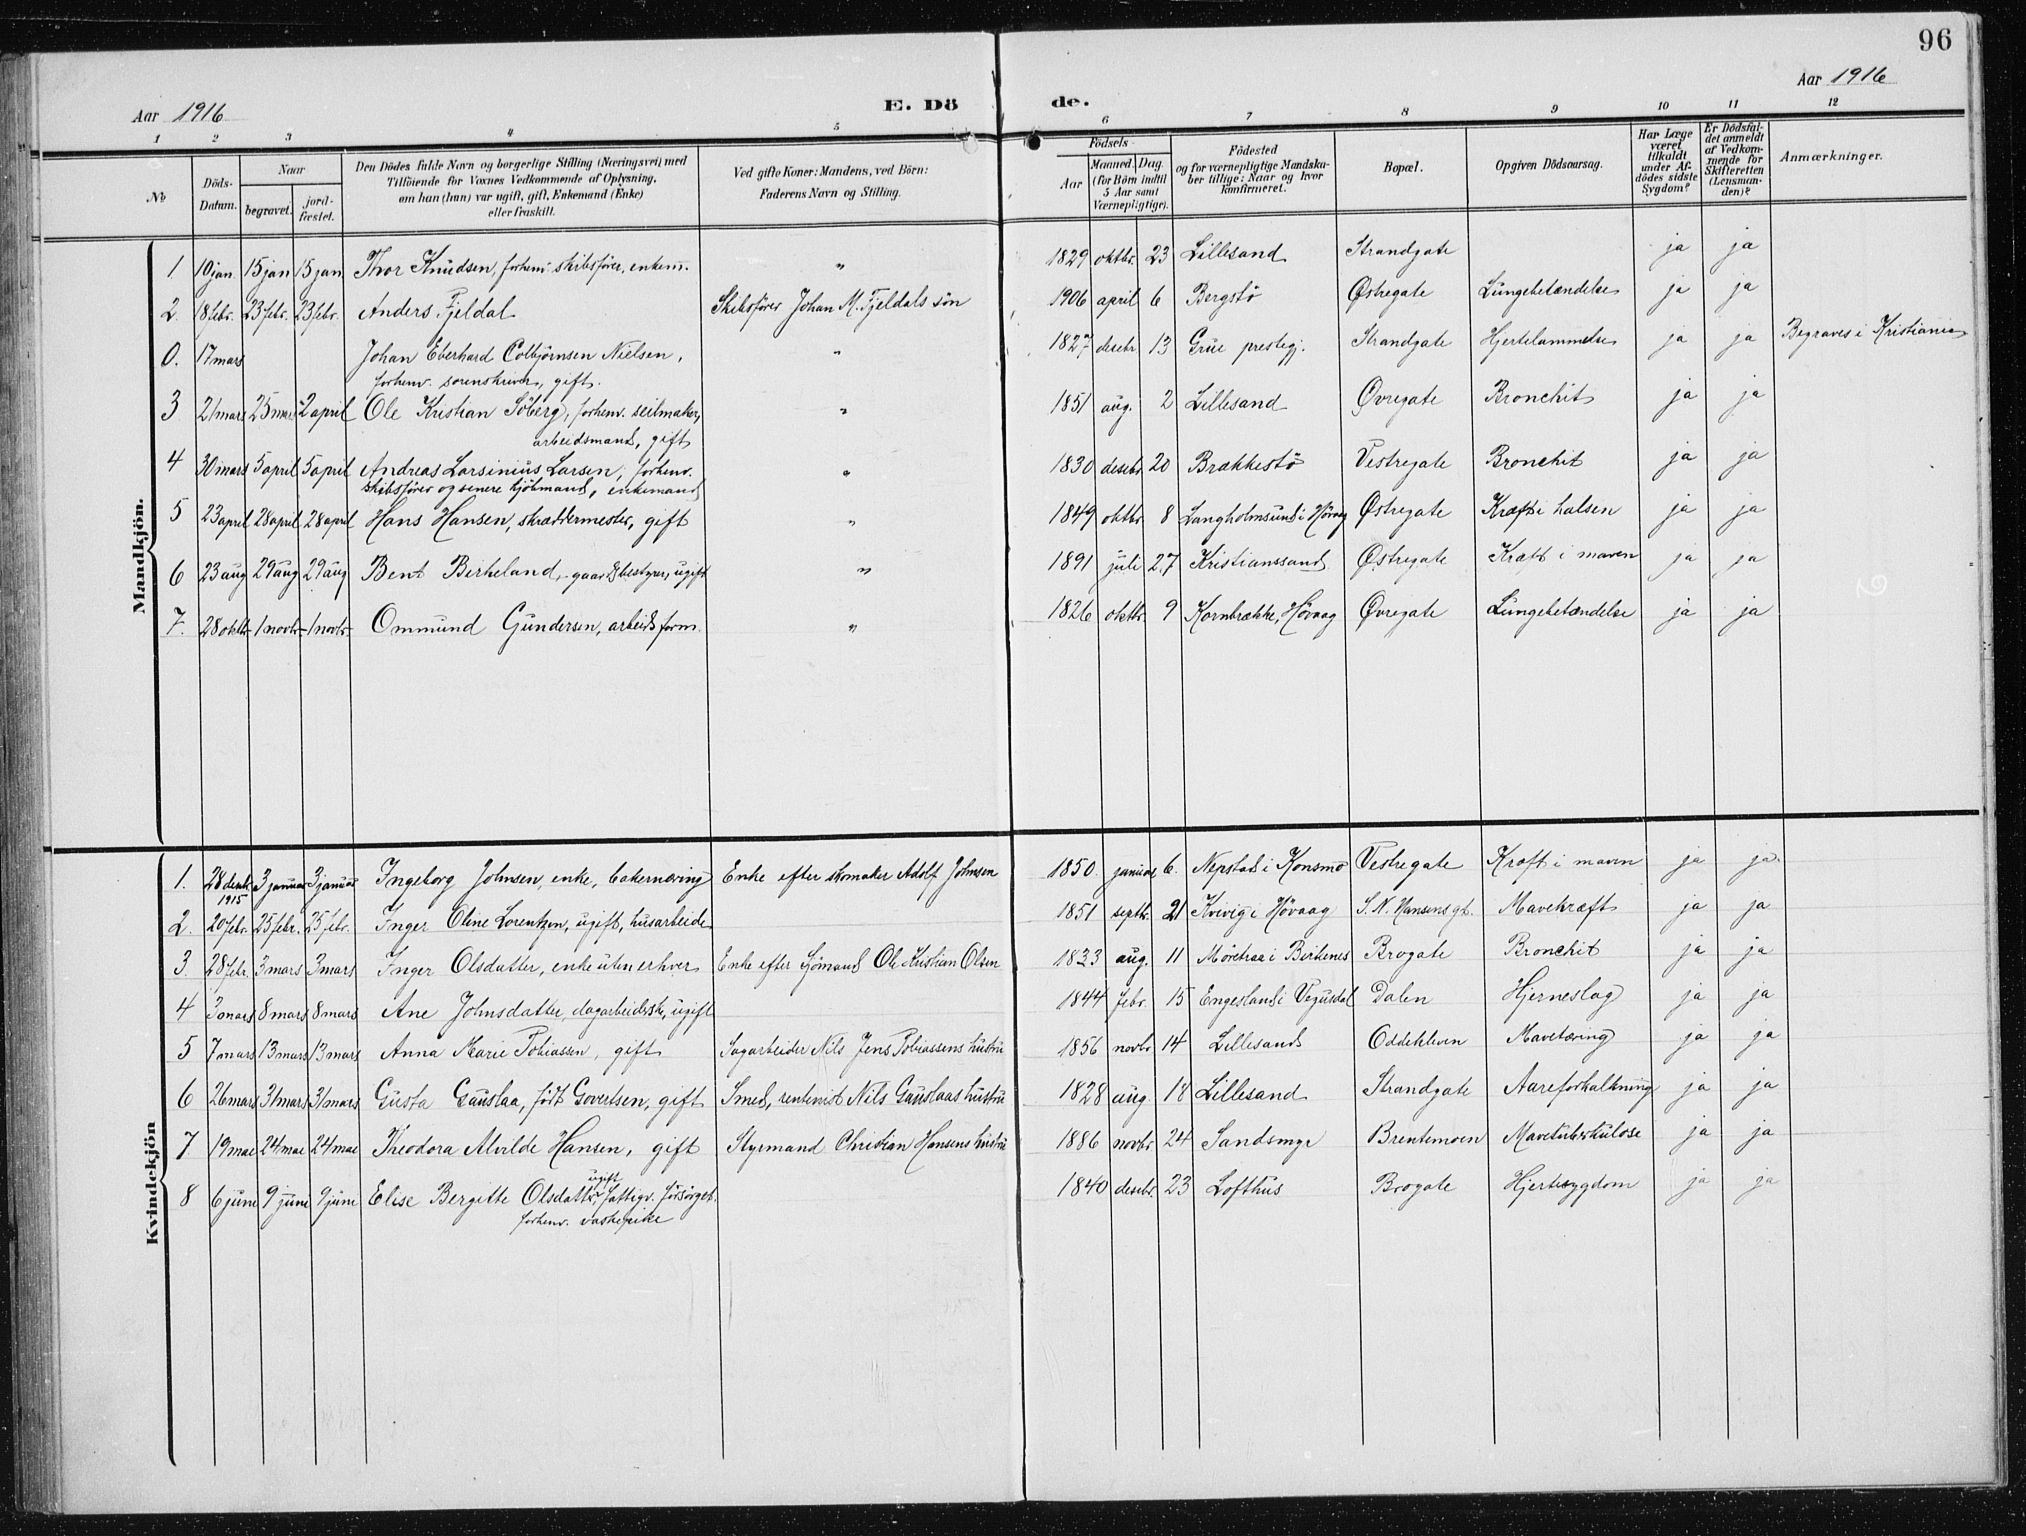 96
Aar 1916
E. Dö
de.
Aar 1916
1 2 3 4 5 6 7 8 9 10 11 12
No
Döds-Datum.
Naar
begravet.
jord-fæstet.
Den Dödes fulde Navn og borgerlige Stilling (Næringsvei) med
Tilföiende for Voxnes Vedkommende af Oplysning.
om han (hun) var ugift, gift, Enkemand (Enke)
eller fraskilt.
Ved gifte Koner: Mandens, ved Börn:
Faderens Navn og Stilling.
Födsels-
Aar
Maaned. Dag.
(for Börn indtil
5 Aar samt
Værnepligtige).
Födested
og for værnepligtige Mandska-
ber tillige: Naar og hvor
konfirmeret.
Bopæl.
Opgiven Dödsaarsag.
Har Læge
været
tilkaldt
under Af-
dödes sidste
Sygdom?
Er Dödsfal-
det anmeldt
af Vedkom-
mende for
Skifteretten
(Lensman-
den)?
Anmærkninger.
Mandkjön.
1 10 jan. 15 jan 15 jan Thor Knudsen, forhenv. skibsfører, enkem. " 1829 oktbr. 23 Lillesand Strandgate ja ja
2. 18 febr. 23 febr. 23 febr. Anders Fjeldal Skibsfører Johan M. Fjeldals søn 1906 april 6 Bergstø Østregate Lungebetændelse ja ja
0. 17 mars Johan Eberhard Colbjørnsen Nielsen, " 1827 desebr 13 Grue prestegj. Strandgate Hjertelammelse ja ja Begraves i Kristiania
forhenv. sorenskriver, gift.
3 21 mars 25 mars 2 april Ole Kristian Söberg, forhenv. seilmaker, " 1851 aug. 2 Lillesand Øvregate Bronchit ja ja
arbeidsmand, gift
4 30 mars 5 april 5 april Andreas Larsinius Larsen, forhenv. " 1830 desebr. 20 Brækkestø Vestregate Bronchit ja ja
skibsfører og senere kjöbmand, enkemand
5 23 april 28 april 28 april Hans Hansen, skræddermester, gift " 1849 oktbr. 8 Langholmsund i Høvaag Østregate Kræft i halsen ja ja
6 23 aug 29 aug 29 aug Bent Birkeland, gaardsbestyrer, ugift " 1891 juli 27 Kristianssand Østregate Kræft i maven ja ja
7. 28 oktbr. 1 novbr. 1 novbr. Ommund Gundersen, arbeidsform. " 1826 oktbr. 9 Kornbrække, Høvaag Øvregate Lungebetændelse ja ja
Kvindekjön
1. 28 desbr. 1915 3 januar 3 januar Ingeborg Johnsen, enke, bakernæring Enke efter skomaker Adolf Johnsen 1850. januar 6. Nepstad i Konsmo Vestregate Kræft i maven ja ja
2. 20 febr. 25 febr. 25 febr. Inger Oline Lorentzen, ugift, husarbeide 1851 septbr. 21 Kvivig i Høvaag S. N. Hansens gt. Mavekræft ja ja
3. 28 febr. 3 mars 3 mars Inger Olsdatter, enke uten erhver Enke efter Sjömand Ole Kristian Olsen 1833 aug. 11 Møretraa i Birkenes Brogate Bronchit ja ja
4 3 mars 8 mars 8 mars Ane Johnsdatter, dagarbeiderske, ugift 1844 febr. 15 Engesland i Vegusdal Dalen Hjerneslag ja ja
5 7 mars 13 mars 13 mars Anna Marie Tobiassen, gift Sagarbeider Nils Jens Tobiassens hustru 1856 novbr 14 Lillesand Oddekleven Mavetæring ja ja
6 26 mars 31 mars 31 mars Gusta Gauslaa, født Govertsen, gift Smed, rentenist Nils Gauslaas hustru 1828 aug 18 Lillesand Strandgate Aareforkalkning ja ja
7 19 mai 24 mai 24 mai Theodora Alvilde Hansen, gift Styrmand Christian Hansens hustru 1886 novbr 24 Sandsmyr Brentemoen Mavetuberkulose ja ja
8 6 june 9 june 9 june Elise Bergitte Olsdatter, ugift fattigv. forsørget. 1840 desebr. 23 Lofthus Brogate Hjertesygdom ja ja
forhenv. vaskepike